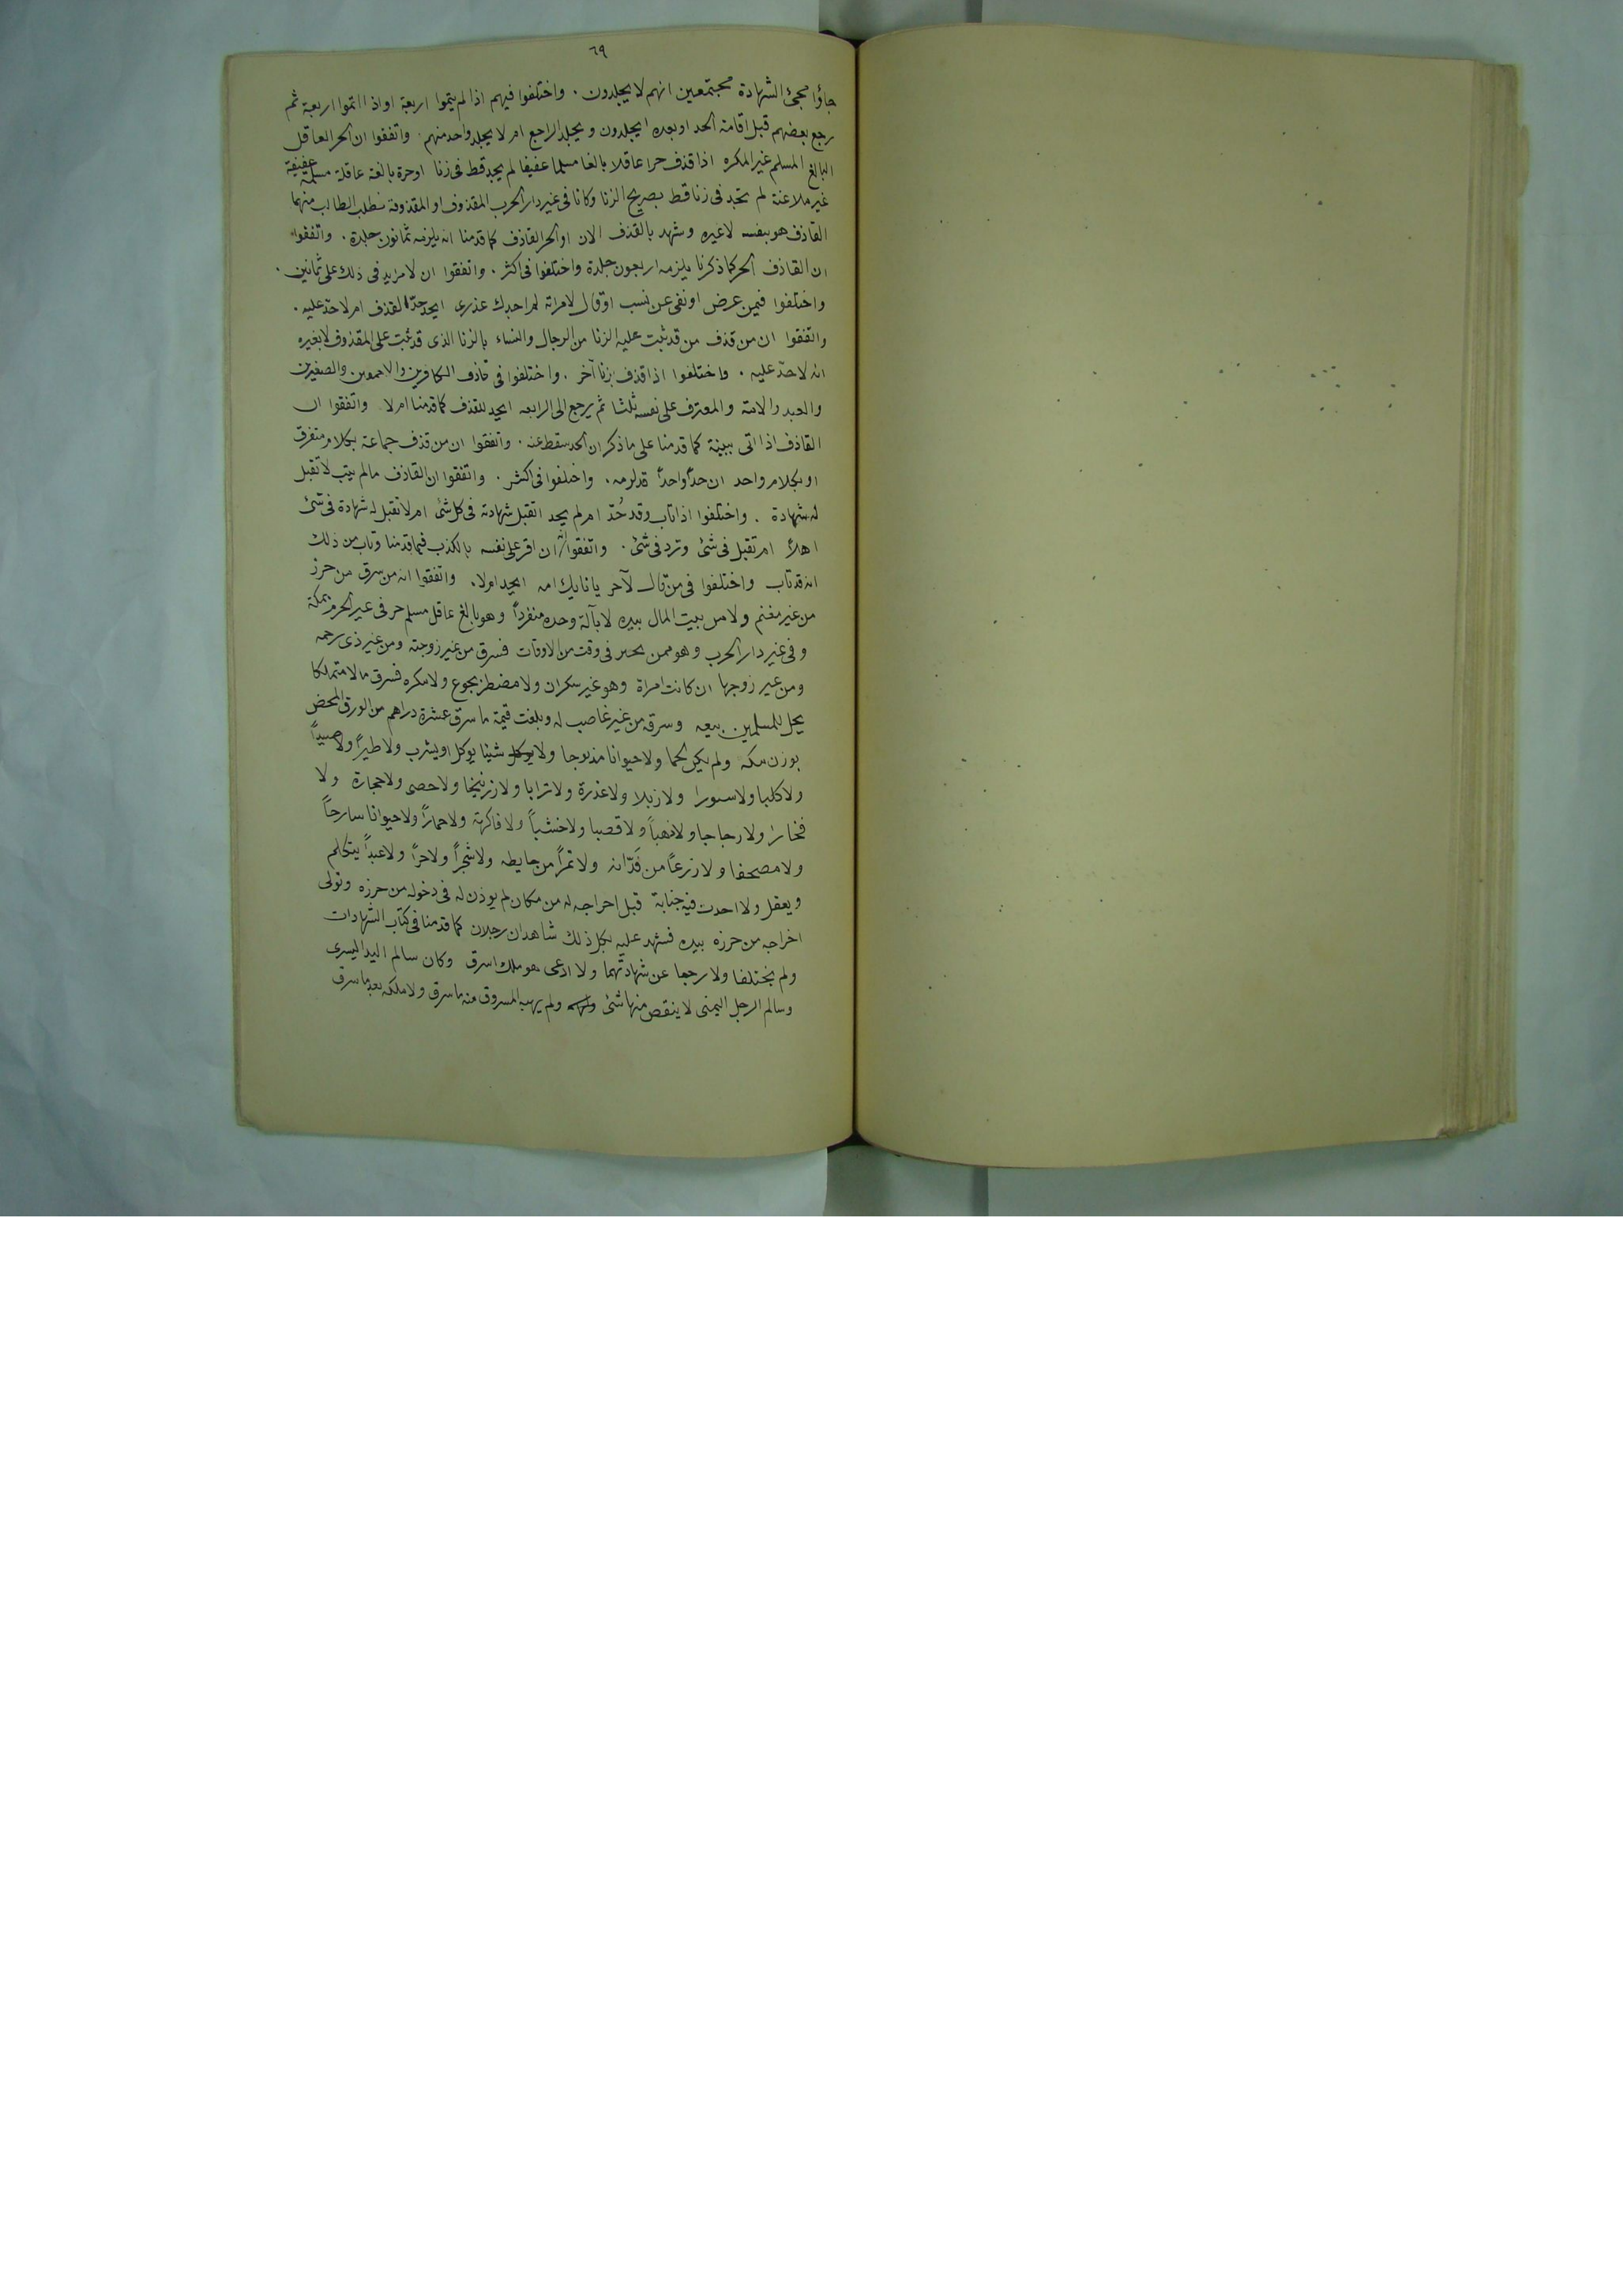 ٦٩
جاؤا مجئ الشهادة مجتمعين انهم لا يجلدون . واختلفوا فيهم اذا لم يتموا اربعة او اذا اتموا اربعة ثم
رجع بعضهم قبل اقامة الحد او بعده ايجلدون ويجلد الراجع ام لا يجلد واحد منهم . واتفقوا ان الحر العاقل
البالغ المسلم غير المكره اذا قذف حرا عاقلا بالغا مسلما عفيفا لم يحد قط فى زنا او حرة بالغة عاقلة مسلمة عفيفة
غير ملاعنة لم تحد فى زنا قط بصريح الزنا وكانا فى غير دار الحرب المقذوف او المقذوفة فطلب الطالب منهما
القاذف هو بنفسه لا غيره وشهد بالقذف الان او الحر القاذف كما قدمنا انه يلزمه ثمانون جلدة . واتفقوا
ان القاذف الحر كما ذكرنا يلزمه اربعون جلدة واختلفوا فى اكثر . واتفقوا ان لا مزايد فى ذلك على ثمانين .
واختلفوا فيمن عرض او نفى عن نسب او قال لامراته لم اجدك عذرى ايحد حدّ القذف ام لا حدّ عليه .
واتفقوا ان من قذف من قد ثبت عليه الزنا من الرجال والنساء بالزنا الذى قد ثبت على المقذوف لا بغيره
انه لا حدّ عليه . واختلفوا اذا قذف بزنا آخر . واختلفوا فى قاذف الكافرين والمجنون والصغيرين
والعبد والامة والمعترف على نفسه ثلثا ثم يرجع الى الرابعه ايحد للقذف كما قدمنا ام لا واتفقوا ان
القاذف اذا اتى ببينة كما قدمنا على ما ذكر ان الحد سقط عنه . واتفقوا ان من قذف جماعة بكلام متفرق
او بكلام واحد ان حداً واحداً قد لزمه . واختلفوا فى اكثر . واتفقوا ان القاذف مالم يتب لا تقبل
له شهادة . واختلفوا اذا تاب وقد حُدّ ام لم يحد اتقبل شهادته فى كل شئ ام لا تقبل له شهادة فى شئ
اصلا ام تقبل فى شئ وترد فى شئ . واتفقوا انه ان اقر على نفسه بالكذب فيما قدمنا وتاب من ذلك
انه قد تاب واختلفوا فى من قال لآخر يا نايك امه ايحد ام لا . واتفقوا انه من سرق من حرز
من غير مغنم ولا من بيت المال بيده لا بآلة وحده منفرداً وهو بالغ عاقل مسلم حر فى غير الحرم بمكة
وفى غير دار الحرب وهو ممن فى وقت من الاوقات فسرق من غير زوجته ومن غير ذى رحمه
ومن غير زوجها ان كانت امراة وهو غير سكران ولا مضطر بجوع ولا مكره فسرق مالا متملكا
يحل للمسلمين بيعه وسرقه من غير غاصب له وبلغت قيمة ما سرق عشرة دراهم من الورق المحض
بوزن مكه ولم يكن لحما ولا حيوانا مذبوحا ولا شيئا يوكل او يشرب ولا طيراً ولا صيداً
ولا كلبا ولا سنورا ولا زبلا ولا عذرة ولا ترابا ولا زرنيخا ولا حصى ولا حجارة ولا
فخارا ولا زجاجا ولا ذهباً ولا قصبا ولا خشباً ولا فاكهة ولا حماراً ولا حيوانا سارحاً
ولا مصحفا ولا زرعاً من فَدّانه ولا تمراً من حايطه ولا شجراً ولا حراً ولا عبداً يتكلم
ويعقل ولا احدث فيه جنابة قبل اخراجه له من مكان لم يوذن له فى دخوله من حرزه وتولى
اخراجه من حرزه بيده فشهد عليه بكل ذلك شاهدان رجلان كما قدمنا فى كتاب الشهادات
ولم يختلفا ولا رجعا عن شهادتهما ولا ادعى هو ملك ما سرق وكان سالم اليد اليسرى
وسالم الرجل اليمنى لا ينقص منها شئ ولم يهبه المسروق منه ما سرق ولا ملكه بعد ما سرق